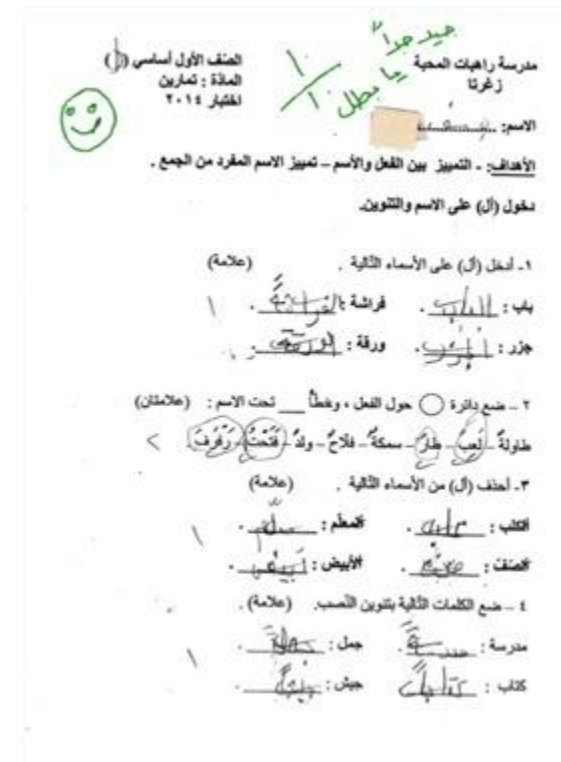 جيد جداً
يا بطل
١٠
١٠
مدرسة راهبات المحبة
زغرتا
الصنف الأول أساسي
المادة : تمارين
اختبار ٢٠١٤
الاسم:
الأهداف: - التمييز بين الفعل والأسم – تمييز الاسم المفرد من الجمع .
دخول (أل) على الاسم والتنوين.
١- أدخل (أل) على الأسماء التالية . (علامة)
باب : الباب . فراشة : الفراشة . ١
جزر : الجزر . ورقة : الورقة .
٢ – ضع دائرة حول الفعل ، وخطاً ___ تحت الاسم : (علامتان)
طاولةٌ – لعِبَ – طارَ – سمكةٌ – فلاحٌ – ولدٌ – فَتَحَتْ – رَفرفَ. ٢
٣- أحذف (أل) من الأسماء التالية . (علامة)
الكلب : كلب . المعلّم : . ١
الصنف : . الأبيض : أبيض .
٤ – ضع الكلمات التالية بتنوين النصب. (علامة) .
مدرسة : مدرسةً . جمل : جملاً . ١
كتاب : كتاباً جيش : جيشاً .